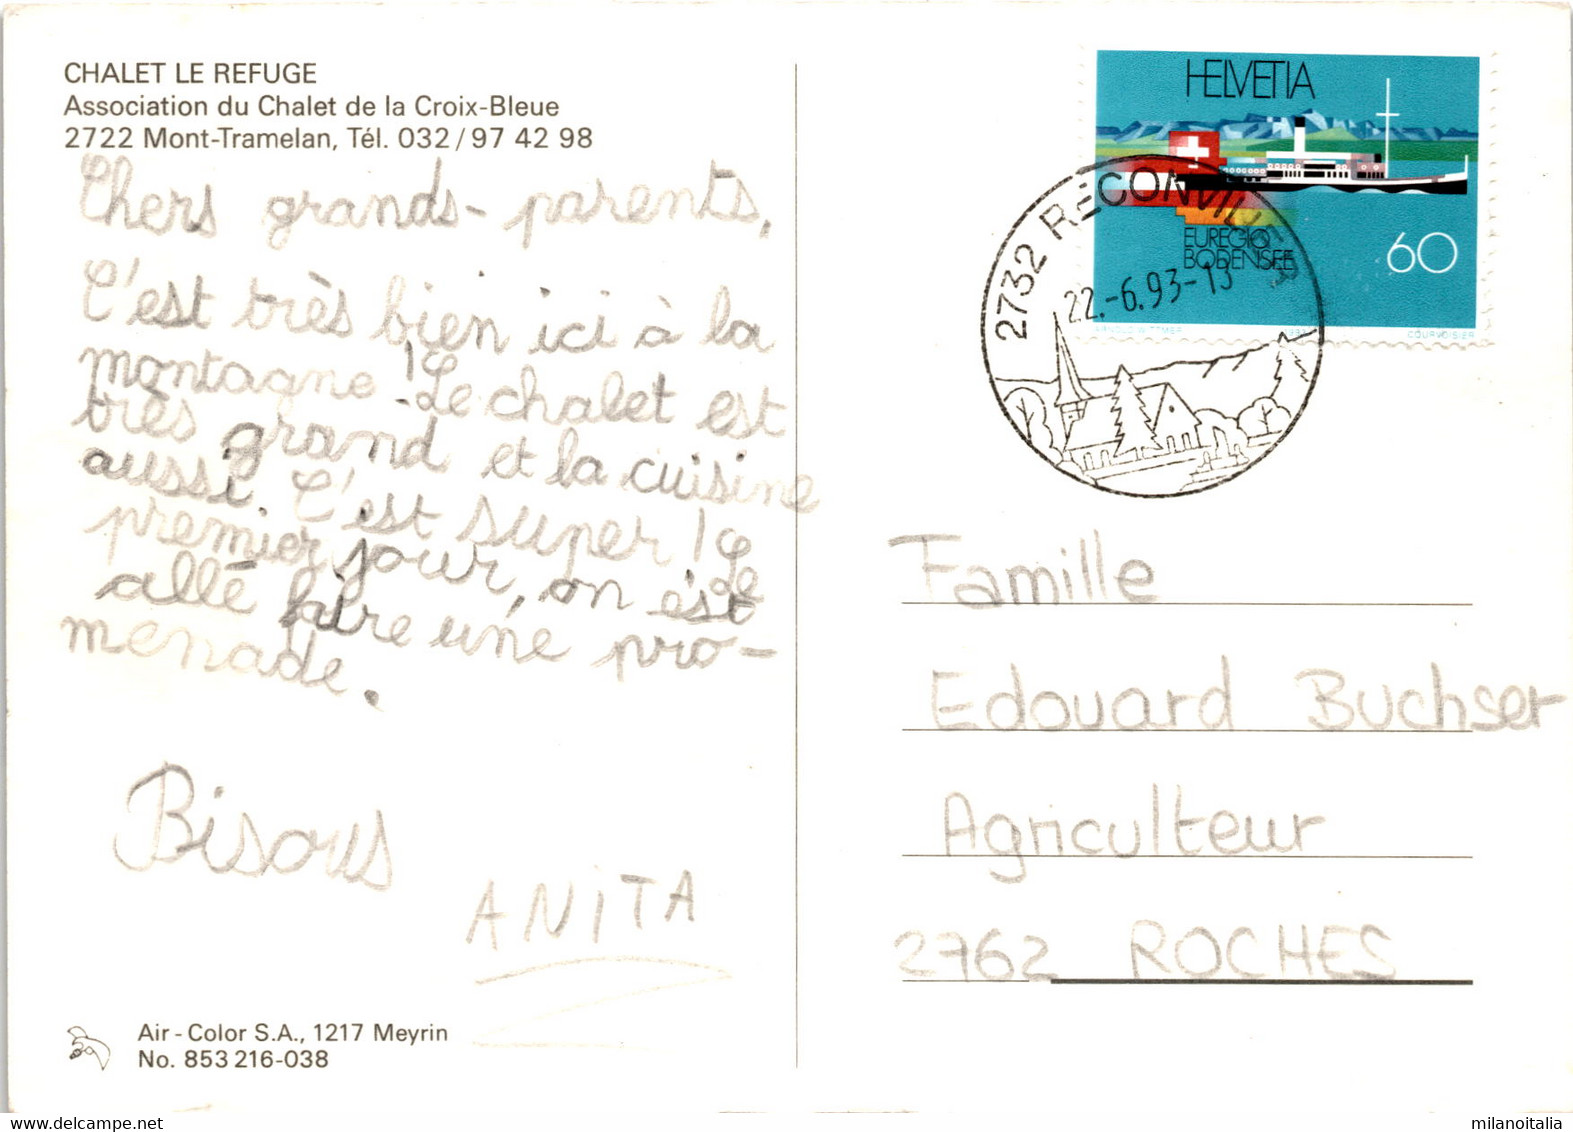 CHALET LE REFUGE
Association du Chalet de la Croix-Bleue
2722 Mont-Tramelan, Tél. 032/97 42 98
Chers grands-parents,
C'est très bien ici à la
montagne! Le chalet est
très grand et la cuisine
aussi. C'est super! Le
premier jour, on est
allé faire une pro-
menade.
Bisous
ANITA
Air-Color S.A., 1217 Meyrin
No. 853 216-038
HELVETIA
EUREGIO
BODENSEE
60
ARNOLD WITTMER 1993 COURVOISIER
2732 RECONVILIER
22.-6.93-13
Famille
Edouard Buchser
Agriculteur
2762 ROCHES
milanoitalia